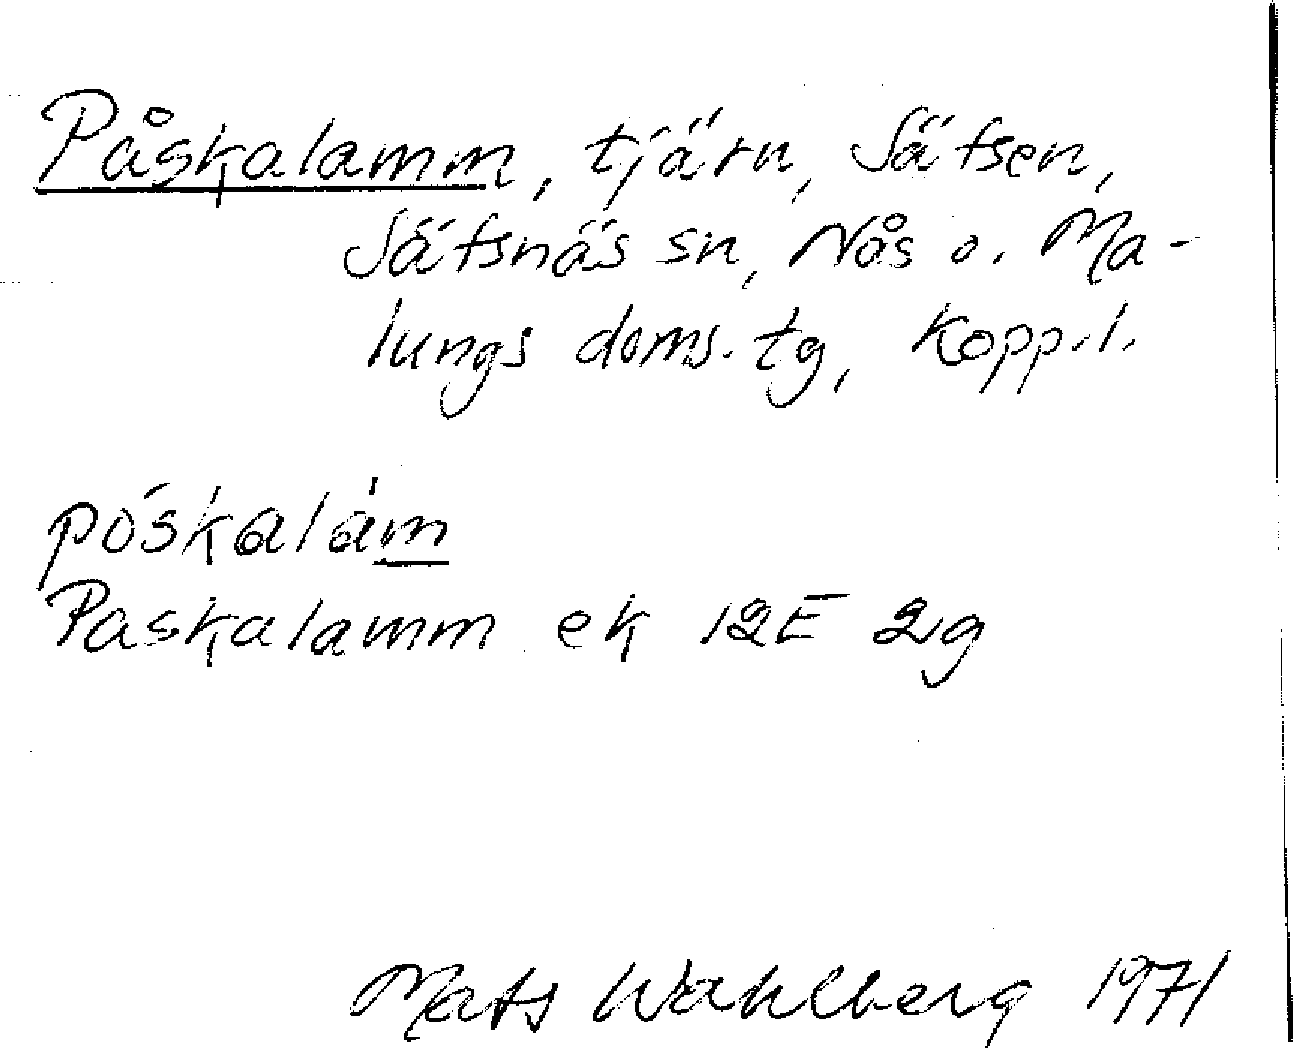 Påskalamm, tjärn, Säfsen,
Säfsnäs sn, Nås o. Ma-
lungs doms. tg, Kopp.l.
póskalàm
Paskalamm ek 12E 2g
Mats Wahlberg 1971